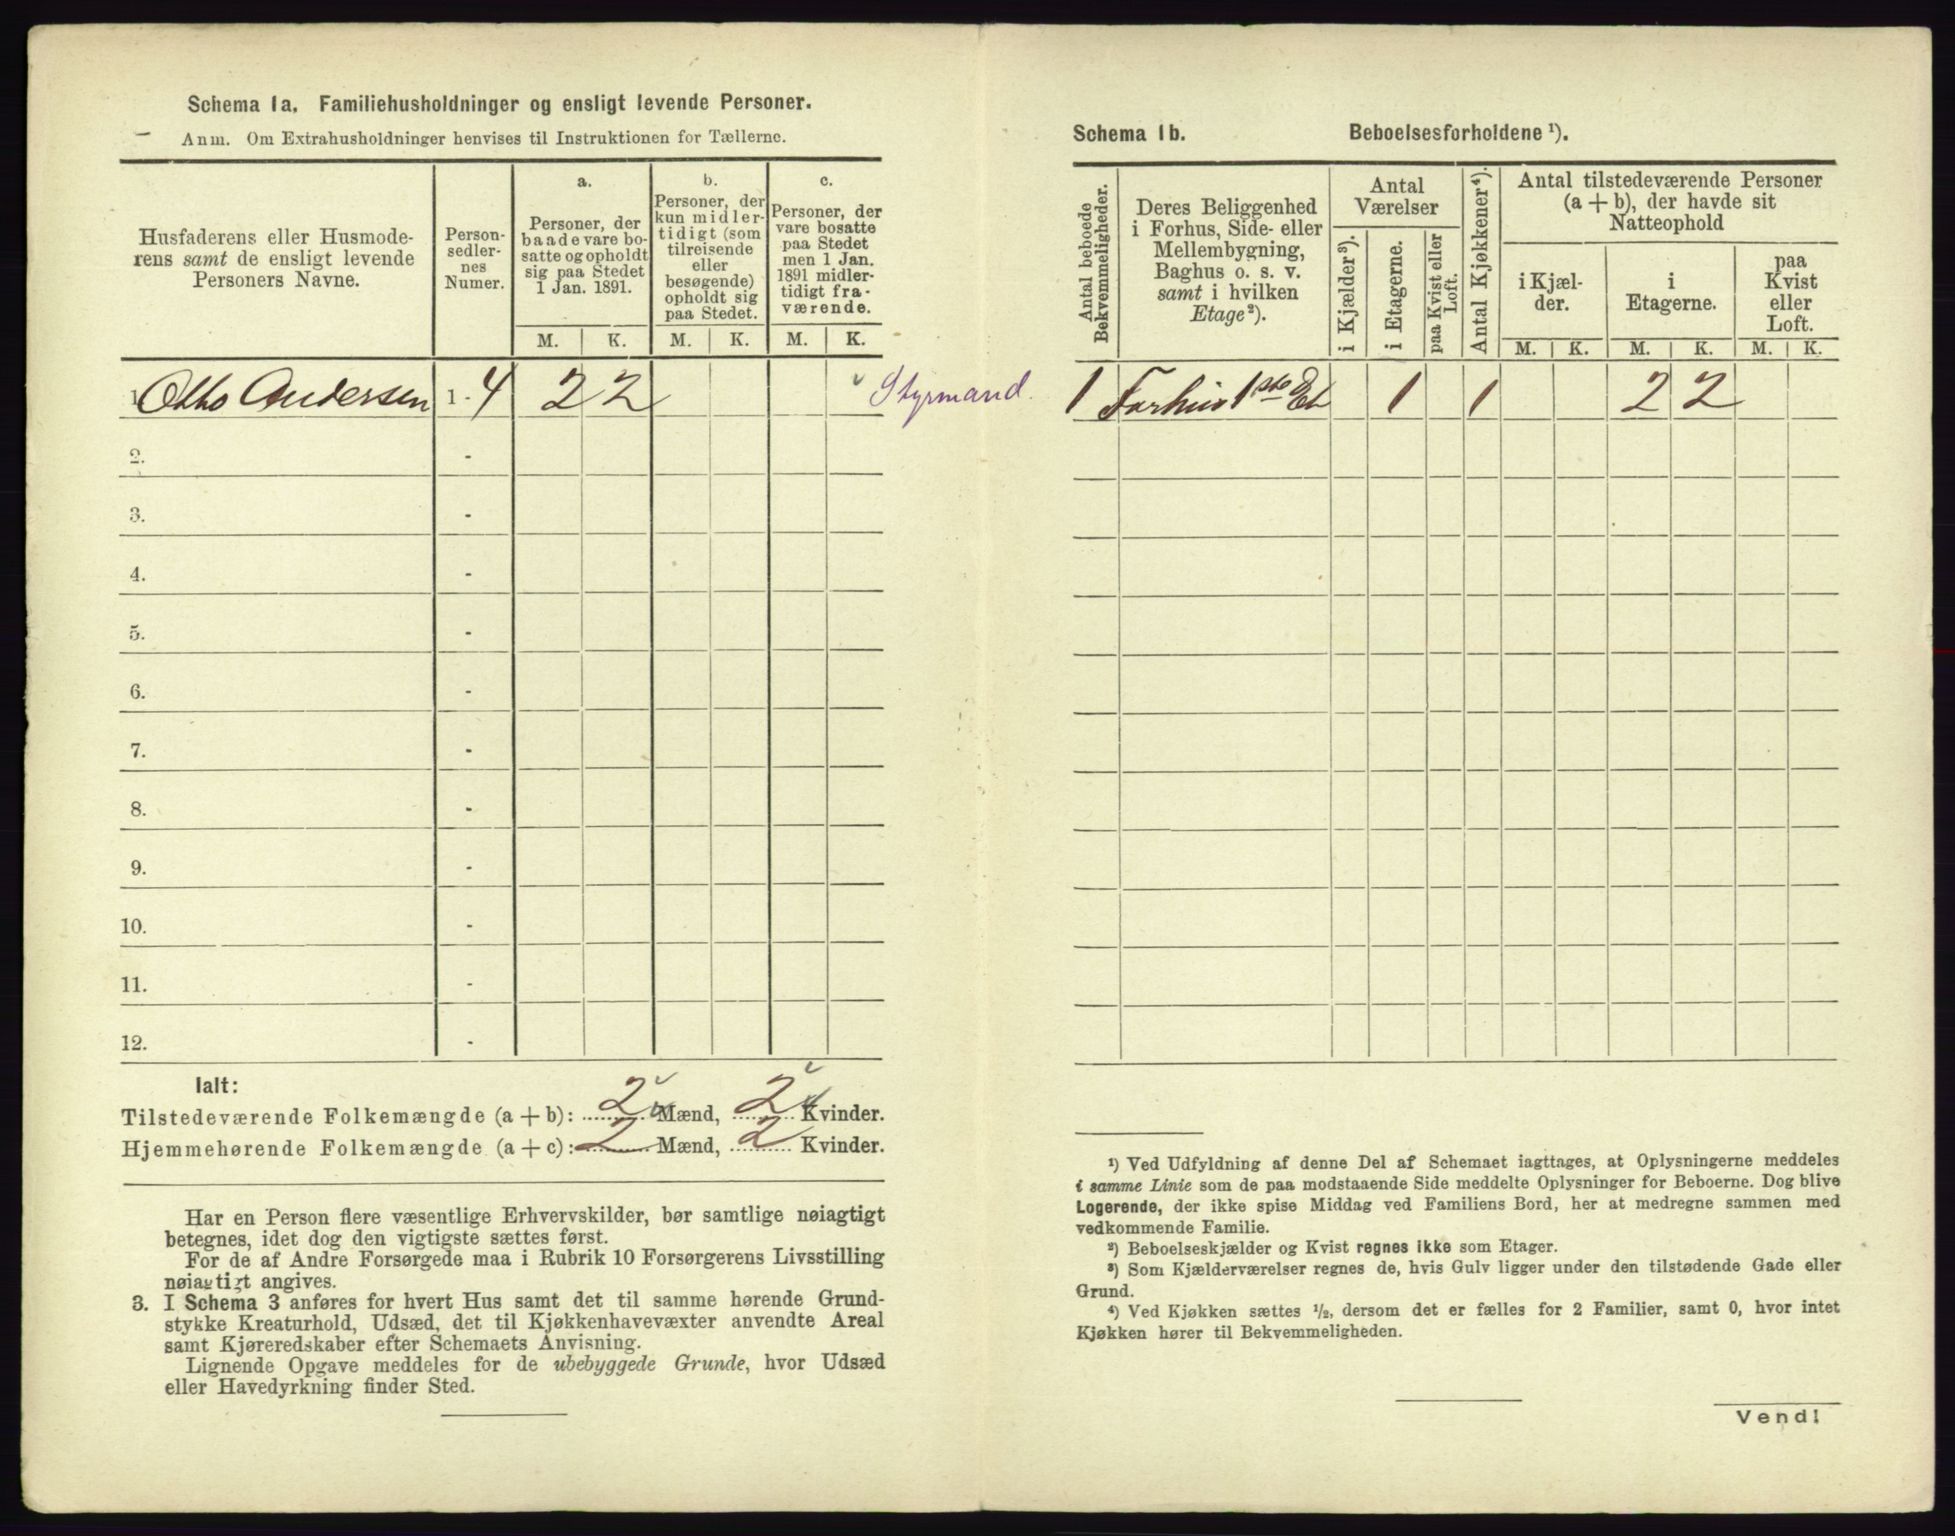 Schema 1a. Familiehusholdninger og ensligt levende Personer.
Anm. Om Extrahusholdninger henvises til Instruktionen for Tællerne.
Husfaderens eller Husmode-
rens samt de ensligt levende
Personers Navne.
Person-
sedler-
nes
Numer.
a.
Personer, der
baade vare bo-
satte og opholdt
sig paa Stedet
1 Jan. 1891.
b.
Personer, der
kun midler-
tidigt (som
tilreisende
eller
besøgende)
opholdt sig
paa Stedet.
c.
Personer, der
vare bosatte
paa Stedet
men 1 Jan.
1891 midler-
tidigt fra-
værende.
M. K. M. K. M. K.
1. Otto Andersen 1 - 4 2 2 Styrmand.
2. -
3. -
4. -
5. -
6. -
7. -
8. -
9. -
10. -
11. -
12. -
Ialt:
Tilstedeværende Folkemængde (a + b): 2 Mænd, 2 Kvinder.
Hjemmehørende Folkemængde (a + c): 2 Mænd, 2 Kvinder.
Har en Person flere væsentlige Erhvervskilder, bør samtlige nøiagtigt
betegnes, idet dog den vigtigste sættes først.
For de af Andre Forsørgede maa i Rubrik 10 Forsørgerens Livsstilling
nøiagtigt angives.
3. I Schema 3 anføres for hvert Hus samt det til samme hørende Grund-
stykke Kreaturhold, Udsæd, det til Kjøkkenhavevæxter anvendte Areal
samt Kjøreredskaber efter Schemaets Anvisning.
Lignende Opgave meddeles for de ubebyggede Grunde, hvor Udsæd
eller Havedyrkning finder Sted.
Schema 1b. Beboelsesforholdene ¹).
Antal beboede
Bekvemmeligheder.
Deres Beliggenhed
i Forhus, Side- eller
Mellembygning,
Baghus o. s. v.
samt i hvilken
Etage²).
Antal
Værelser
i Kjælder³).
i Etagerne.
paa Kvist eller
Loft.
Antal Kjøkkener⁴).
Antal tilstedeværende Personer
(a + b), der havde sit
Natteophold
i Kjæl-
der.
i
Etagerne.
paa
Kvist
eller
Loft.
M. K. M. K. M. K.
1 Forhus 1ste Et 1 1 2 2
¹) Ved Udfyldning af denne Del af Schemaet iagttages, at Oplysningerne meddeles
i samme Linie som de paa modstaaende Side meddelte Oplysninger for Beboerne. Dog blive
Logerende, der ikke spise Middag ved Familiens Bord, her at medregne sammen med
vedkommende Familie.
²) Beboelseskjælder og Kvist regnes ikke som Etager.
³) Som Kjælderværelser regnes de, hvis Gulv ligger under den tilstødende Gade eller
Grund.
⁴) Ved Kjøkken sættes ½, dersom det er fælles for 2 Familier, samt 0, hvor intet
Kjøkken hører til Bekvemmeligheden.
Vend!